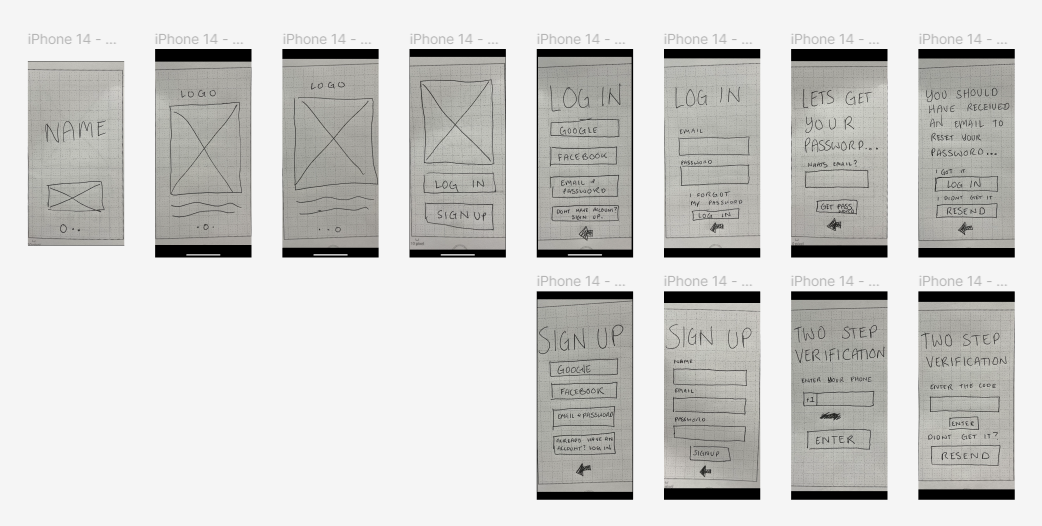 iPhone 14 - ...
NAME
iPhone 14 - ...
LOGO
iPhone 14 - ...
LOGO
iPhone 14 - ...
LOG IN
SIGN UP
iPhone 14 - ...
LOG IN
GOOGLE
FACEBOOK
EMAIL +
PASSWORD
DONT HAVE ACCOUNT?
SIGN UP.
iPhone 14 - ...
LOG IN
EMAIL
PASSWORD
I FORGOT
MY PASSWORD
LOG IN
iPhone 14 - ...
LETS GET
YOUR
PASSWORD...
WHATS EMAIL?
GET PASS
iPhone 14 - ...
YOU SHOULD
HAVE RECEIVED
AN EMAIL TO
RESET YOUR
PASSWORD...
I GOT IT
LOG IN
I DIDNT GET IT
RESEND
iPhone 14 - ...
SIGN UP
GOOGLE
FACEBOOK
EMAIL + PASSWORD
ALREADY HAVE AN
ACCOUNT? LOG IN
iPhone 14 - ...
SIGN UP
NAME
EMAIL
PASSWORD
SIGNUP
iPhone 14 - ...
TWO STEP
VERIFICATION
ENTER YOUR PHONE
+1
ENTER
iPhone 14 - ...
TWO STEP
VERIFICATION
ENTER THE CODE
ENTER
DIDNT GET IT?
RESEND